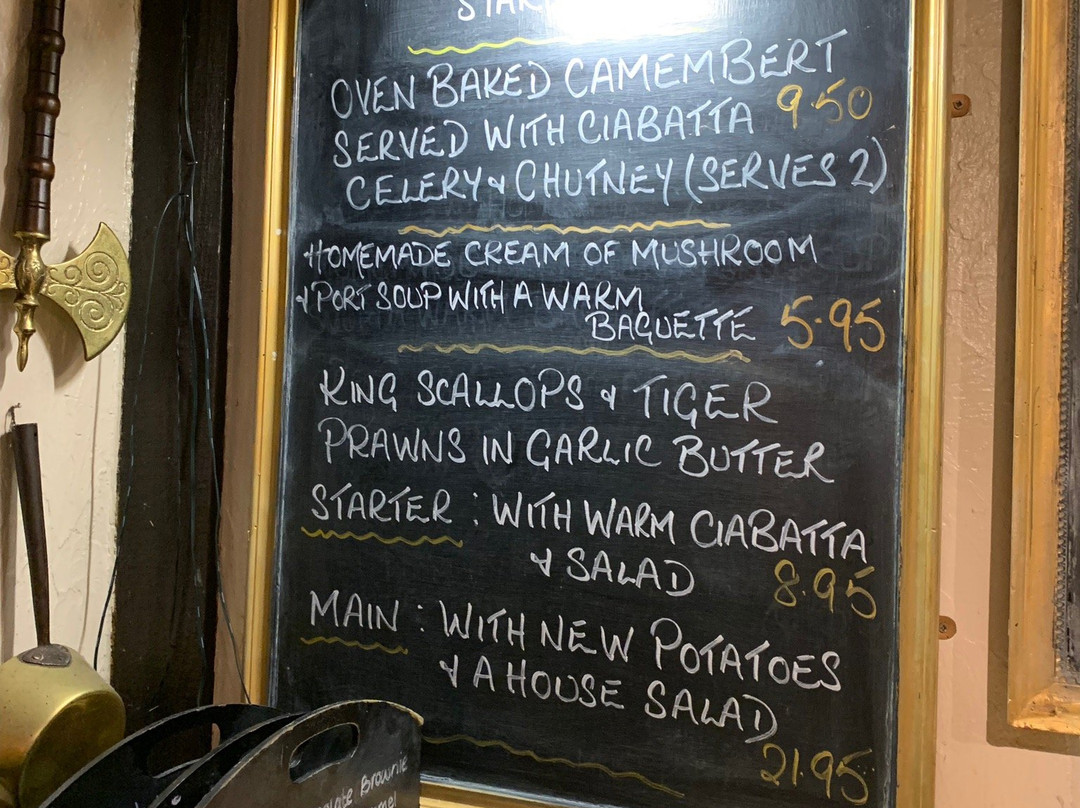 OVEN BAKED CAMEMBERT
SERVED WITH CIABATTA 9.50
CELERY & CHUTNEY (SERVES 2)
HOMEMADE CREAM OF MUSHROOM
& PORT SOUP WITH A WARM
BAGUETTE 5.95
KING SCALLOPS & TIGER
PRAWNS IN GARLIC BUTTER
STARTER : WITH WARM CIABATTA
& SALAD 8.95
MAIN : WITH NEW POTATOES
& A HOUSE SALAD
21.95
Brownie